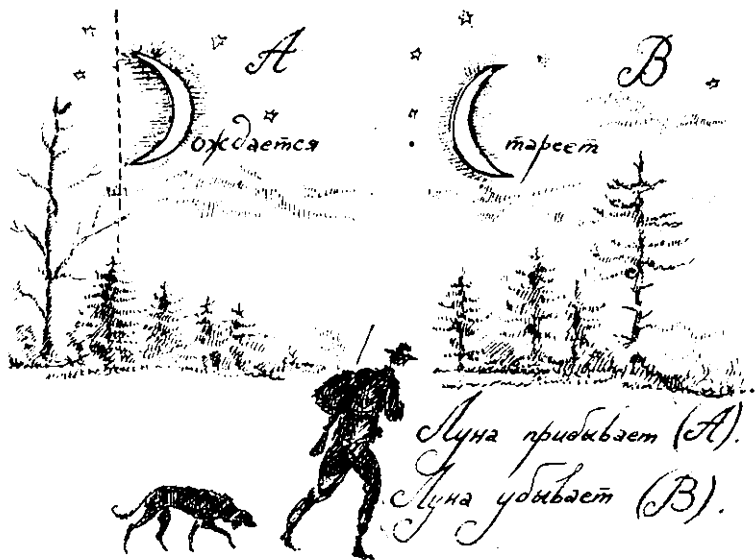 A B
ождается тареет
Луна прибывает (A).
Луна убывает (B).